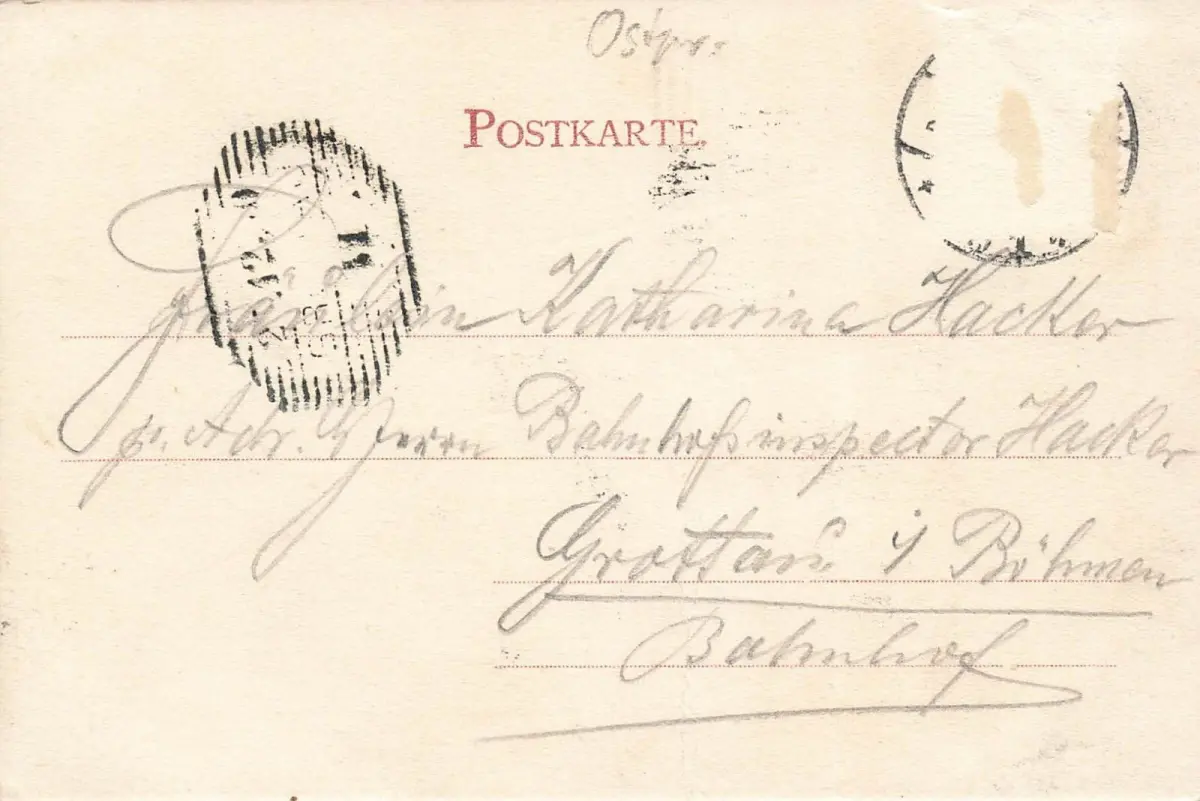 Ostpr.
POSTKARTE.
Fräulein Katharina Hacker
p. Adr. Herrn Bahnhofsinspector Hacker
Grottau i/ Böhmen
Bahnhof